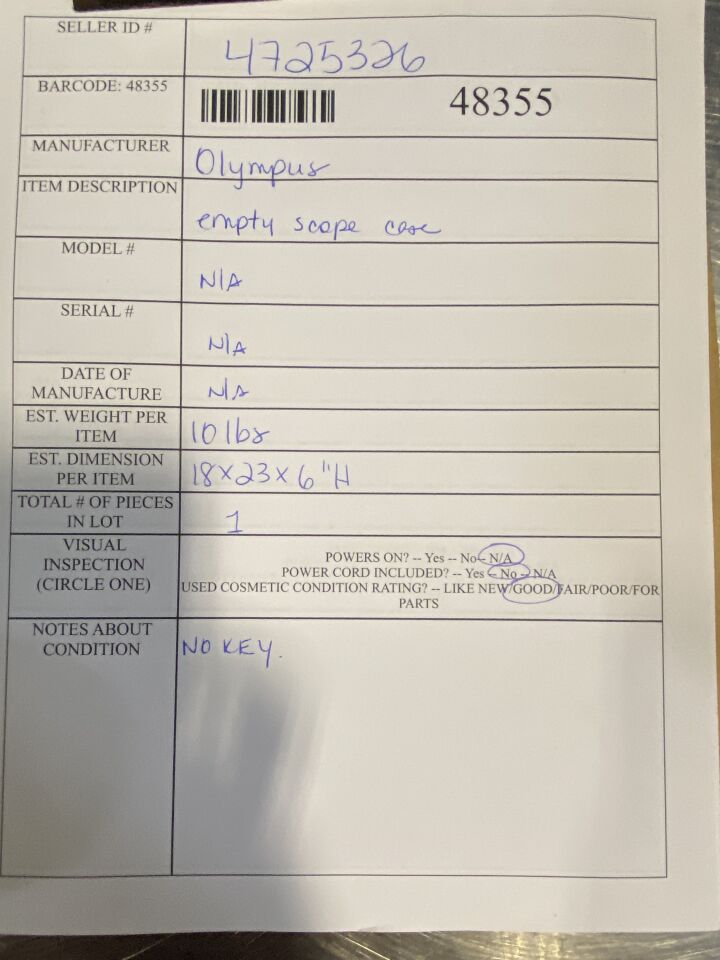 SELLER ID #
4725326
BARCODE: 48355
48355
MANUFACTURER
Olympus
ITEM DESCRIPTION
empty scope case
MODEL #
N/A
SERIAL #
N/A
DATE OF
MANUFACTURE
N/A
EST. WEIGHT PER
ITEM
10 lbs
EST. DIMENSION
PER ITEM
18x23x6"H
TOTAL # OF PIECES
IN LOT
1
VISUAL
INSPECTION
(CIRCLE ONE)
POWERS ON? -- Yes -- No -- N/A
POWER CORD INCLUDED? -- Yes -- No -- N/A
USED COSMETIC CONDITION RATING? -- LIKE NEW/GOOD/FAIR/POOR/FOR
PARTS
NOTES ABOUT
CONDITION
NO KEY.